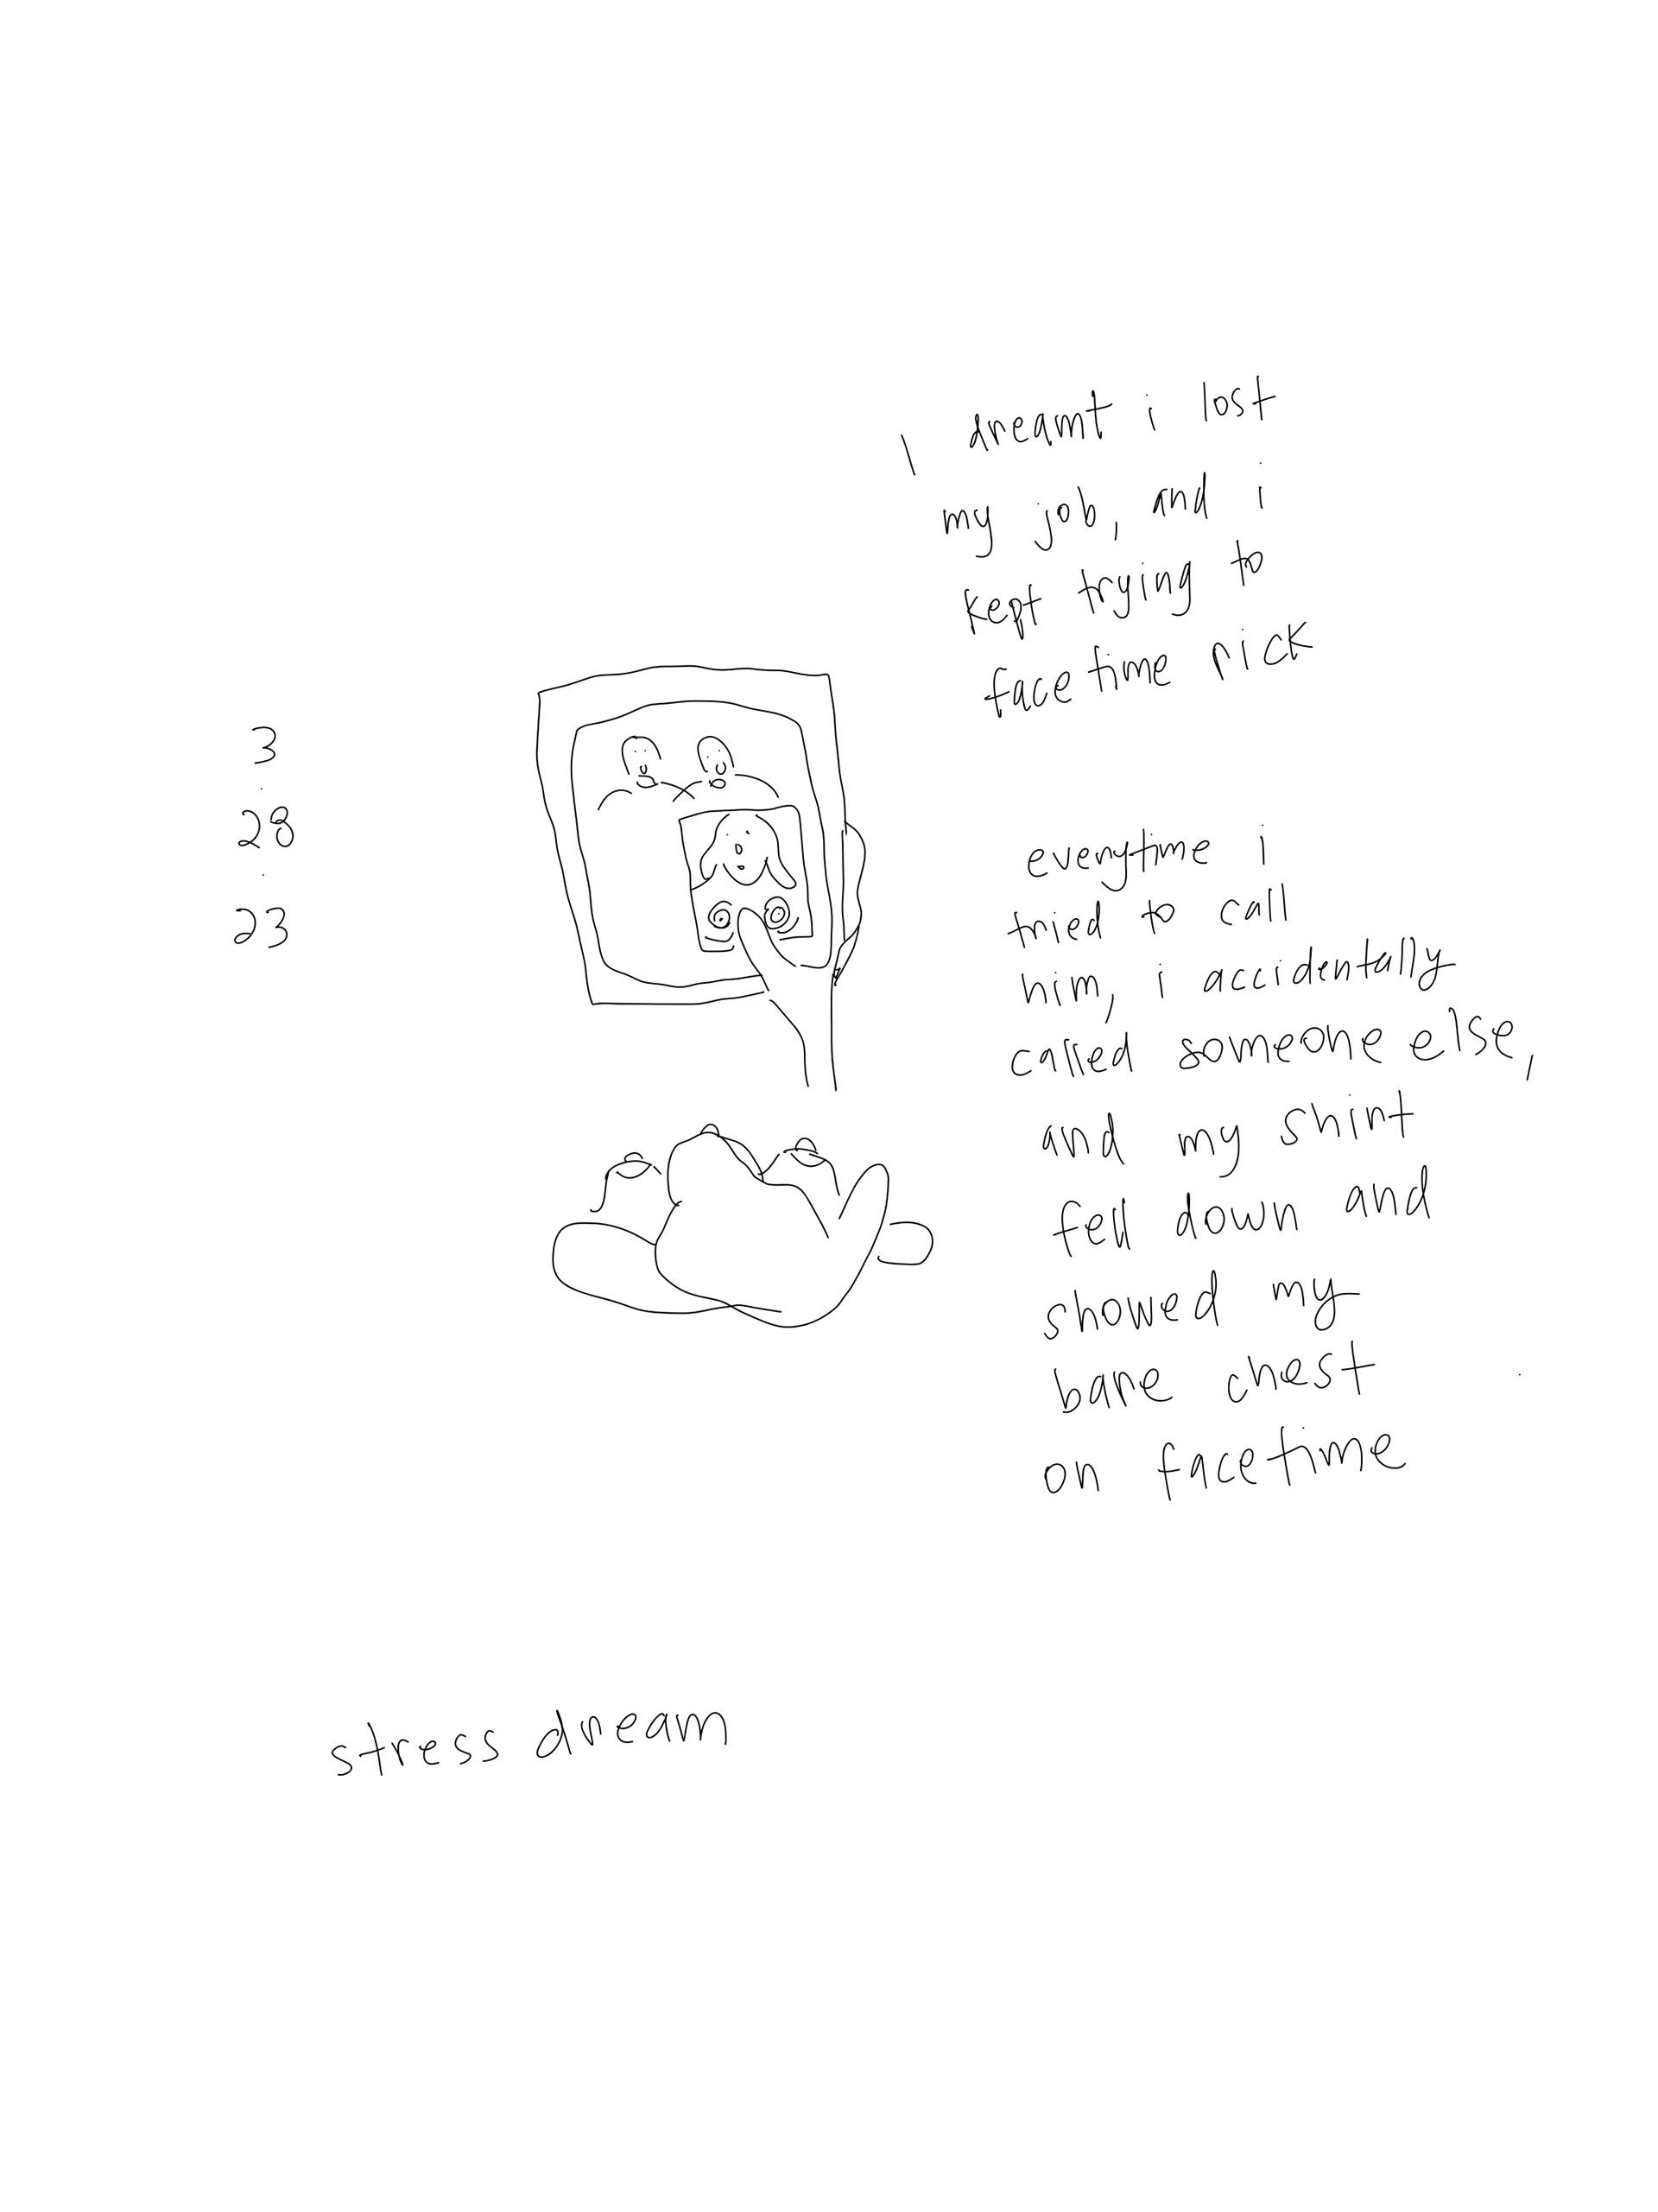 3
.
28
.
23
I dreamt i lost
my job, and i
kept trying to
facetime rick
everytime i
tried to call
him, i accidentally
called someone else,
and my shirt
fell down and
showed my
bare chest
on facetime
stress dream